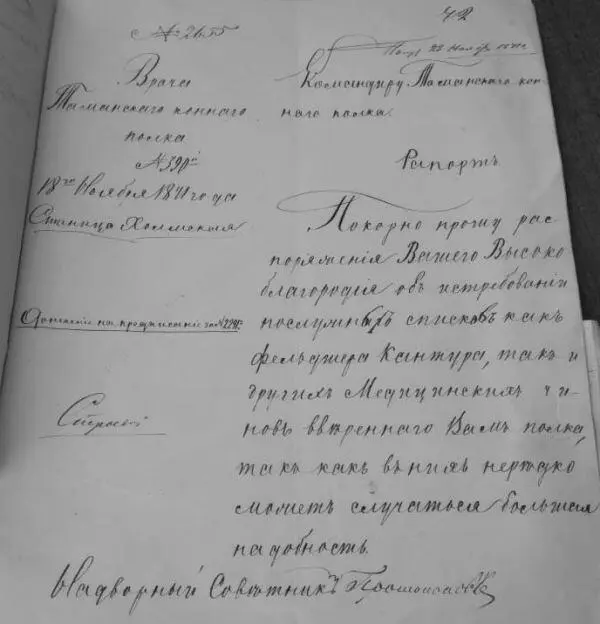 42
№ 2655
Врача
Таманскаго коннаго
полка
№ 390й
18го Ноября 1871 года
Станица Холмская
Командиру Таманскаго кон-
наго полка.
Рапортъ
Покорно прошу рас-
поряженія Вашего Высоко
благородія объ истребованіи
послужныхъ списковъ какъ
фельдшера Кантура, такъ и
другихъ Медицинскихъ чи-
новъ ввѣреннаго Вамъ полка,
такъ какъ въ нихъ нерѣдко
можетъ случаться большая
надобность.
Надворный Совѣтникъ